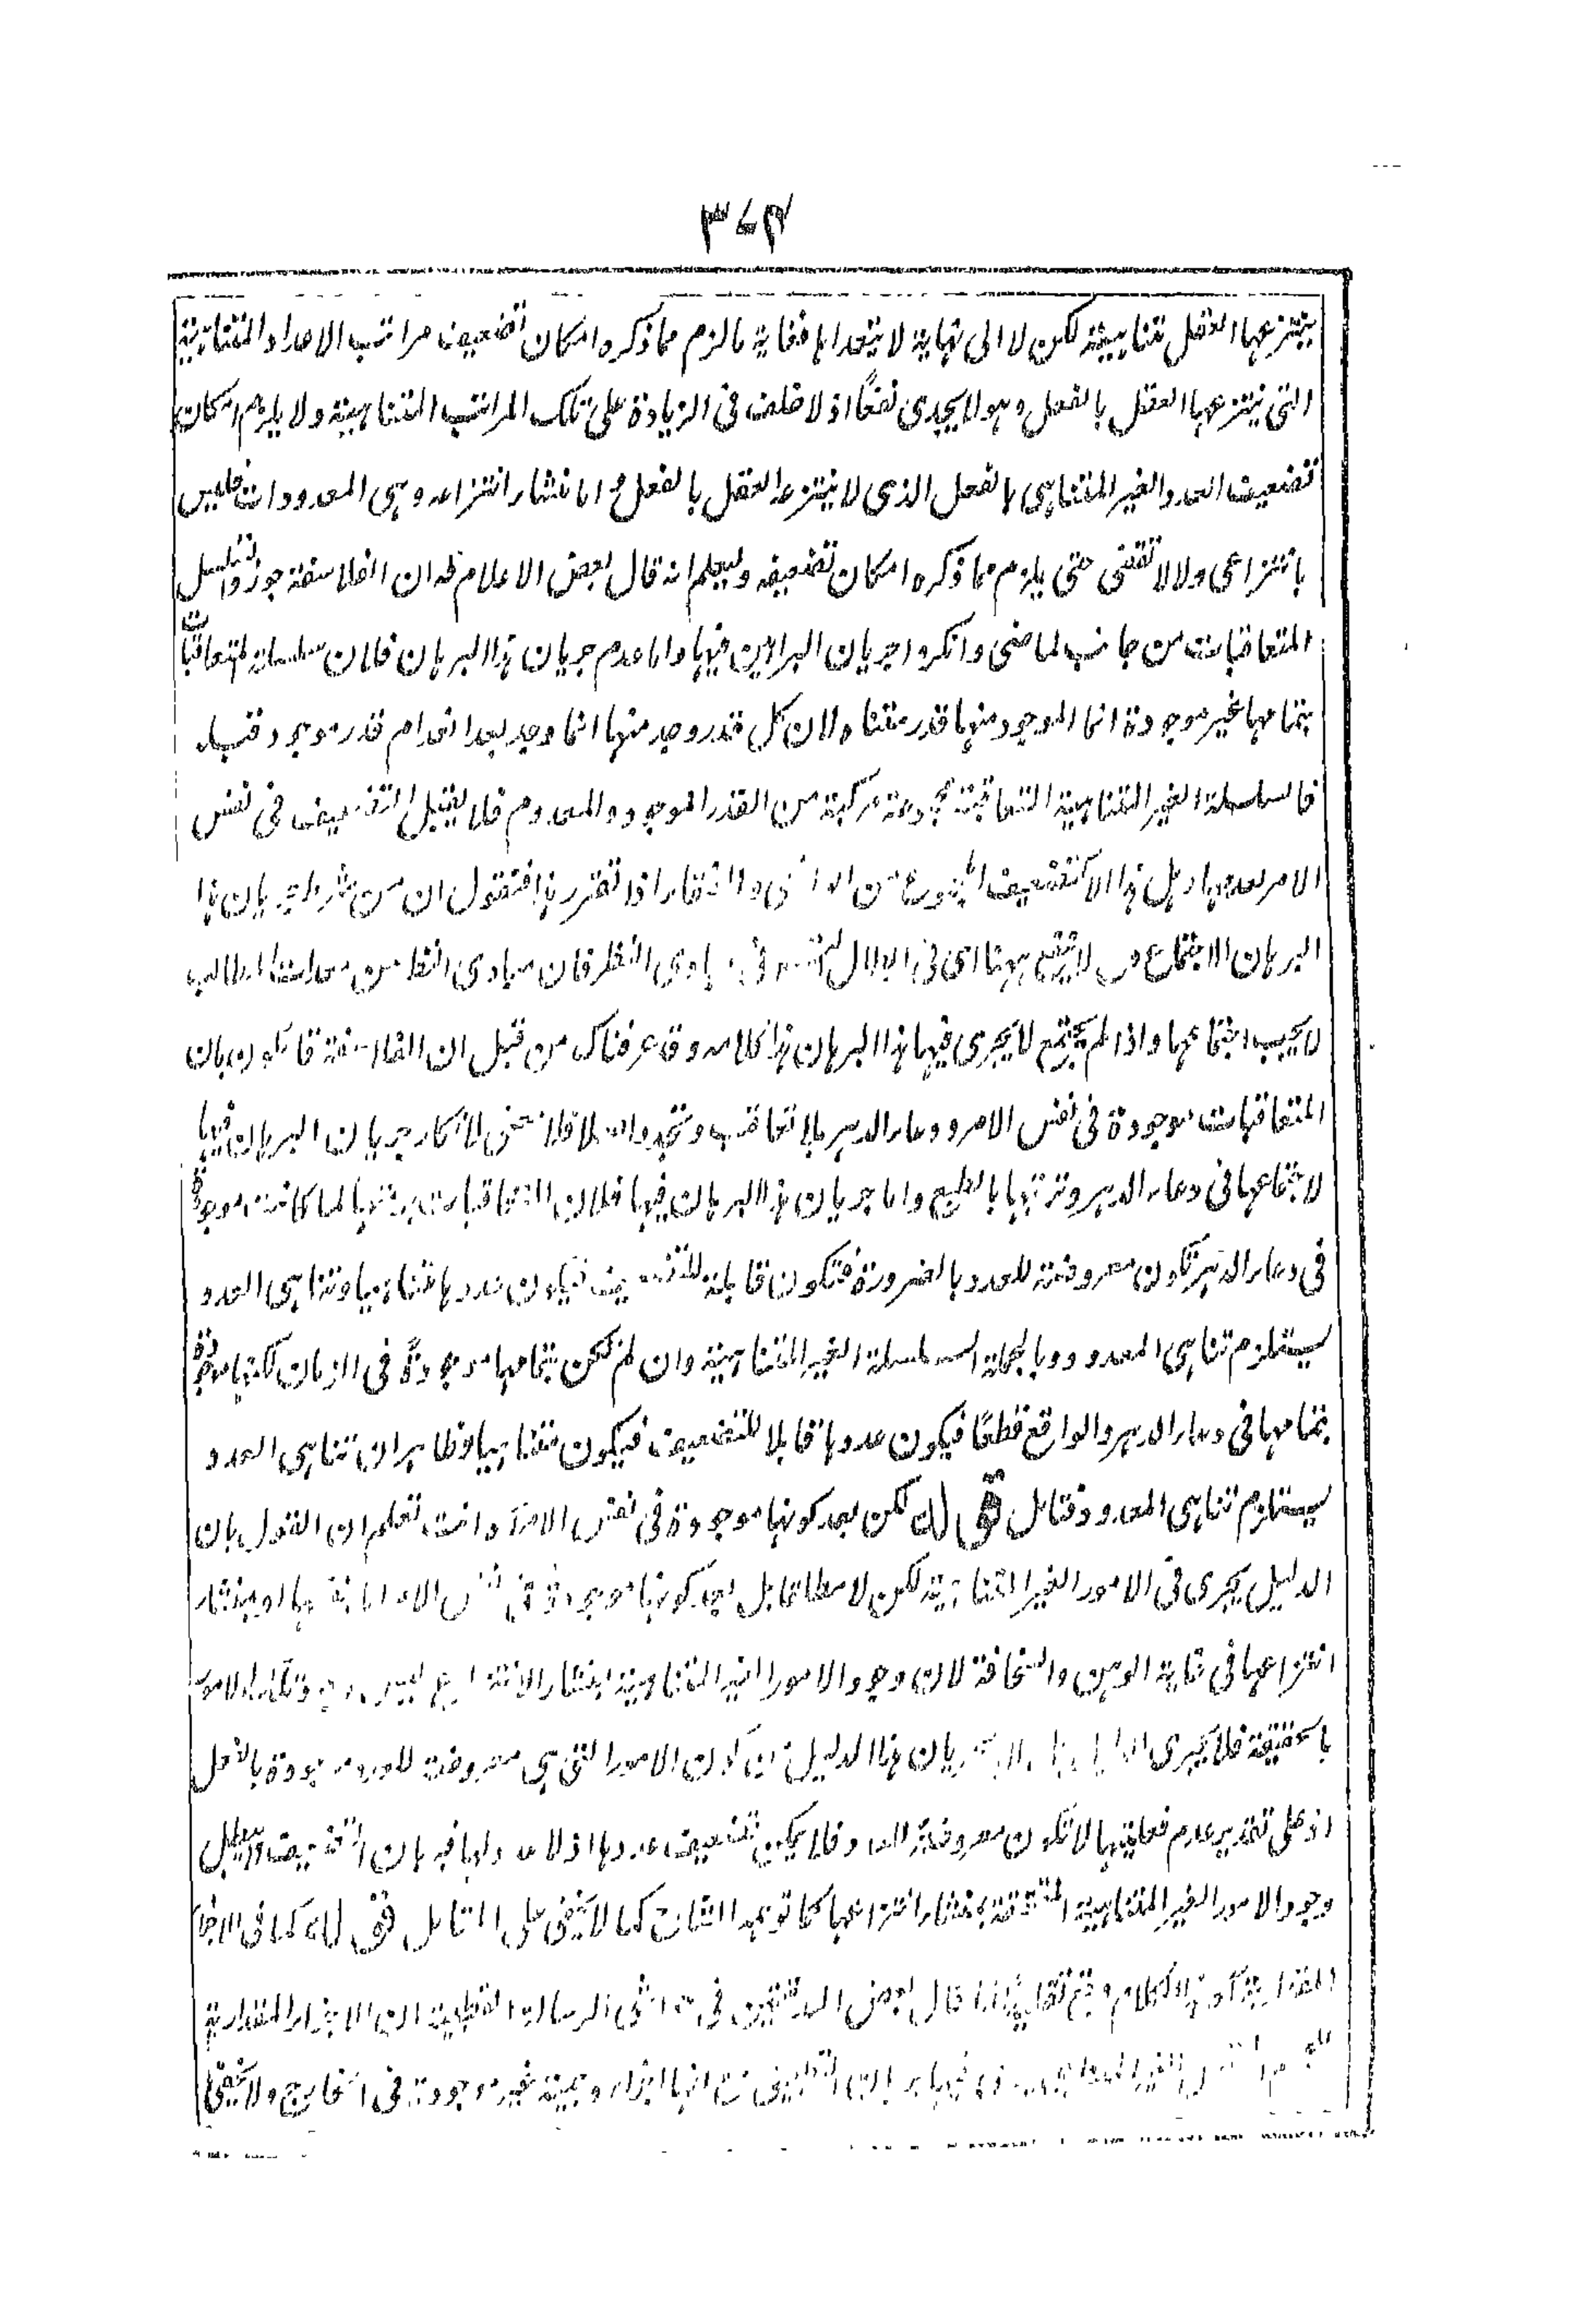 ٣٧٤
ينتزعها العقل متناهية لكن لا الى نهاية لا يتعداها فغاية ما لزم مما ذكره امكان تضعيف مراتب الاعداد المتناهية
التى ينتزعها العقل بالفعل وهو لا يجدى نفعًا اذ لا خلف فى الزيادة على تلك المراتب المتناهية ولا يلزم امكان
تضعيف العدد الغير المتناهى بالفعل الذى لا ينتزعه العقل بالفعل واما منشار انتزاعه وهى المعدودات فليس
بانتزاعى ولا لا تقفى حتى يلزم مما ذكره امكان تضعيفه وليعلم انه قال بعض الاعلام قده ان الفلاسفة جوزوا تسلسل
المتعاقبات من جانب الماضى وانكروا جريان البراهين فيها واما عدم جريان هذا البرهان فلان سلسلة المتعاقبات
بتمامها غير موجودة انما الموجود منها قدر متناه لان كل قدر وجد منها انما وجد بعد انعدام قدر موجود قبله
فالسلسلة الغير المتناهية المتعاقبة مجموعة مركبة من القدر الموجود والمعدوم فلا يقبل التضعيف فى نفس
الامر لعدمها وهل هذا الا كتضعيف اذا تقرر هذا فنقول ان من شرط جريان هذا
البرهان الاجتماع لا يجتمع ههنا اى فى بادى النظر فان مبادى النظر من معدات المطالب
لا يجب اجتماعها واذا لم يجتمع لا يجرى فيها هذا البرهان هذا كلامه وقد عرفناك من قبل ان الفلاسفة قائلون بان
المتعاقبات موجودة فى نفس الامر ووعاء الدهر بلا تعاقب وتجدد اصلا فلا معنى لانكار جريان البرهان فيها
لاجتماعها فى وعاء الدهر وترتبها بالطبع واما جريان هذا البرهان فيها فلان المتعاقبات برمتها لما كانت موجودة
فى وعاء الدهر تكون معروضة للعدد بالضرورة فتكون قابلة للتضعيف فيكون عددها متناهيا وتناهى العدد
يستلزم تناهى المعدود وبالجملة السلسلة الغير المتناهية وان لم تكن بتمامها موجودة فى الزمان لكنها موجودة
بتمامها فى وعاء الدهر والواقع قطعًا فيكون عددها قابلا للتضعيف فيكون متناهيا وظاهر ان تناهى العدد
يستلزم تناهى المعدود فتامل قوله لكن بعد كونها موجودة فى نفس الامر آه وانت تعلم ان القول بان
الدليل يجرى فى الامور الغير المتناهية لكن لا مطلقا بل بعد كونها موجودة فى نفس الامر اما بنفسها او بمنشار
انتزاعها فى غاية الوهن والسخافة لان وجود الامور الغير المتناهية بمنشار الانتزاع ليس وجود تلك الامور
بالحقيقة فلا يجرى جريان هذا الدليل من كون الامور التى هى معروضة للعدد موجودة بالفعل
اذ على تقدير عدم فعليتها لا تكون معروضة للعدد فلا يمكن تضعيف عددها اذ لا عدد لها فبرهان التضعيف
وجود الامور الغير المتناهية المتحققة بمنشار انتزاعها كما توهمه الشارح كما لا يخفى على المتامل قوله كما فى الاجزاء
المقدارية آه هذا الكلام قال بعض المدققين فى حواشى الرسالة القطبية ان الاجزاء المقدارية
للجسم الغير انها اجزاء وهمية غير موجودة فى الخارج ولا يخفى